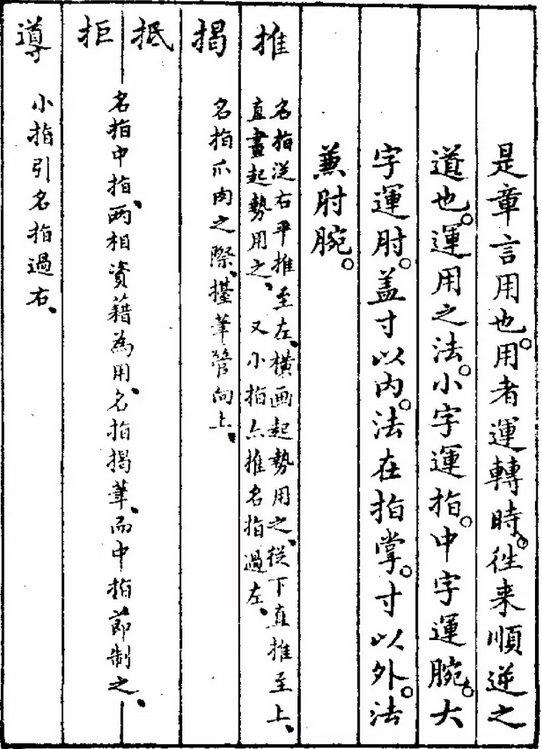 是章言用也。用者運轉時。徃来順逆之
道也。運用之法。小字運指。中字運腕。大
字運肘。盖寸以内。法在指掌。寸以外。法
兼肘腕。
推
名指從右平推至左、横画起勢用之、從下直推至上、
直畫起勢用之、又小指亦推名指過左、
揭
名指爪肉之際、擡筆管向上、
抵拒
名指中指、两相資藉為用、名指揭筆、而中指節制之、
導
小指引名指過右、